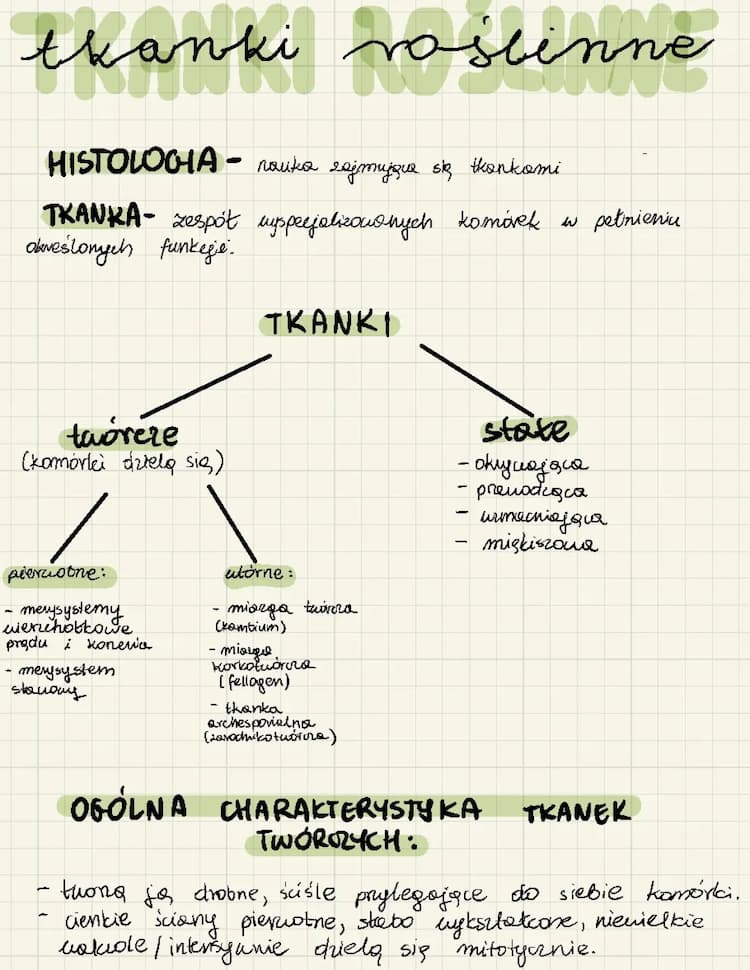 tkanki roślinne
HISTOLOGIA - nauka zajmująca się tkankami
TKANKA - zespół wyspecjalizowanych komórek w pełnieniu
określonych funkcji.
TKANKI
twórcze
(komórki dzielą się)
stałe
- okrywająca
- przewodząca
- wzmacniająca
- miękiszowa
pierwotne:
- merysystemy
wierzchołkowe
prądu i korzenia
- merysystem
stanowy
wtórne:
- miazga twórcza
(kambium)
- miazga
korkotwórcza
(fellogen)
- tkanka
archesporialna
(zarodnikotwórcza)
OGÓLNA CHARAKTERYSTYKA TKANEK
TWÓRCZYCH:
- tworzą ją drobne, ściśle przylegające do siebie komórki.
- cienkie ściany pierwotne, słabo wykształcone, niewielkie
wakuole / intensywnie dzielą się mitotycznie.